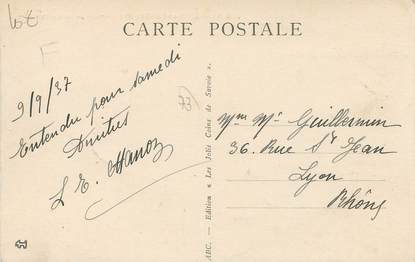 lot
CARTE POSTALE
F
73
9/9/37
Entendu pour samedi
Amitiés
L E.
ABC. - Edition « Les Jolis Coins de Savoie ».
Mme Mr Guillermin
36. Rue St Jean
Lyon
Rhône